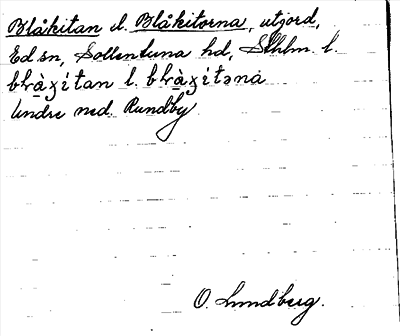 Blåkitan el. Blåkitorna, utjord,
Ed sn, Sollentuna hd, Sthlm. l.
blràʒítan l. blràʒítəna
Under ned. Runsby.
O. Lundberg.